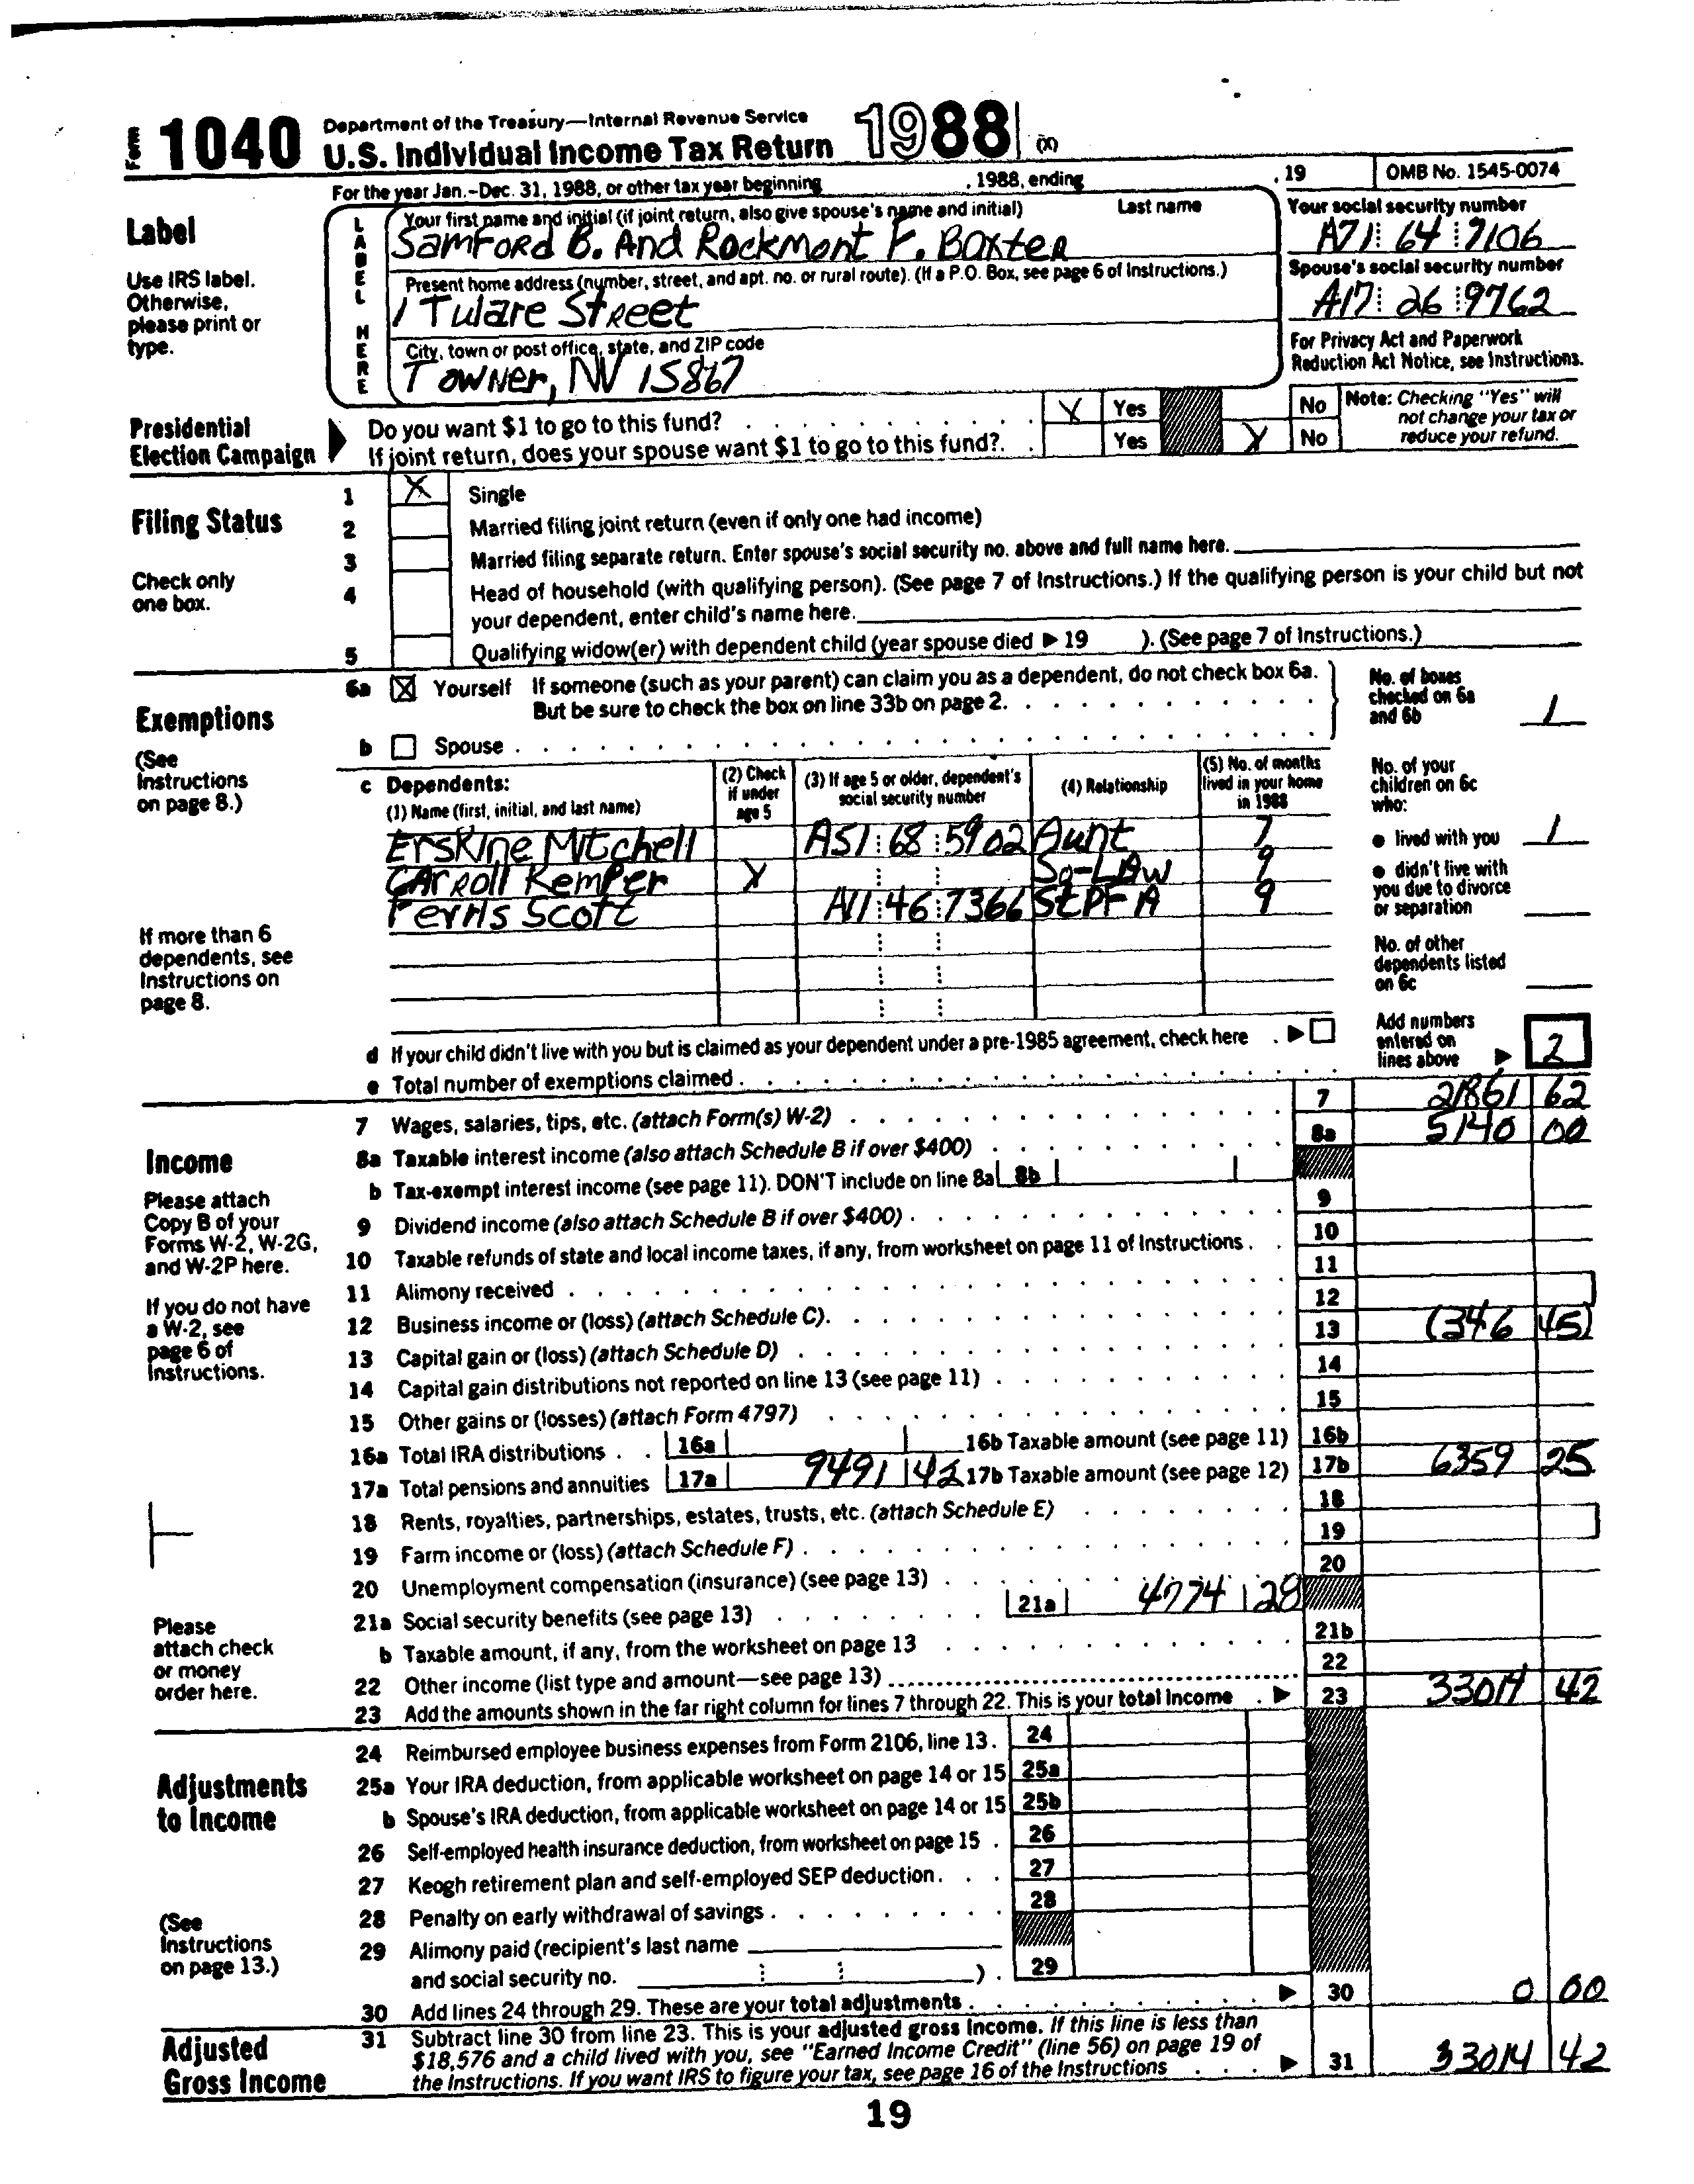 Form 1040 Department of the Treasury—Internal Revenue Service
U.S. Individual Income Tax Return 1988 (X)
For the year Jan.-Dec. 31, 1988, or other tax year beginning , 1988, ending , 19 OMB No. 1545-0074
Label
Use IRS label.
Otherwise,
please print or
type.
LABEL HERE
Your first name and initial (if joint return, also give spouse's name and initial) Last name
Samford B. And Rockmont F. Baxter
Your social security number
A71 64 7106
Present home address (number, street, and apt. no. or rural route). (If a P.O. Box, see page 6 of Instructions.)
1 Tulare Street
Spouse's social security number
A17 26 9762
City, town or post office, state, and ZIP code
Towner, NV 15867
For Privacy Act and Paperwork
Reduction Act Notice, see Instructions.
Presidential
Election Campaign
Do you want $1 to go to this fund? X Yes No
If joint return, does your spouse want $1 to go to this fund? Yes X No
Note: Checking "Yes" will
not change your tax or
reduce your refund.
Filing Status
Check only
one box.
1 X Single
2 Married filing joint return (even if only one had income)
3 Married filing separate return. Enter spouse's social security no. above and full name here.
4 Head of household (with qualifying person). (See page 7 of Instructions.) If the qualifying person is your child but not
your dependent, enter child's name here.
5 Qualifying widow(er) with dependent child (year spouse died ▶ 19 ). (See page 7 of Instructions.)
Exemptions
(See
Instructions
on page 8.)
6a X Yourself If someone (such as your parent) can claim you as a dependent, do not check box 6a.
But be sure to check the box on line 33b on page 2.
No. of boxes
checked on 6a
and 6b 1
b Spouse
c Dependents:
(1) Name (first, initial, and last name)
(2) Check
if under
age 5
(3) If age 5 or older, dependent's
social security number
(4) Relationship
(5) No. of months
lived in your home
in 1988
Erskine Mitchell A51 68 5902 Aunt 7
Carroll Kemper X So-LAW 9
Ferris Scott A11 46 7366 StPFA 9
If more than 6
dependents, see
Instructions on
page 8.
No. of your
children on 6c
who:
● lived with you 1
● didn't live with
you due to divorce
or separation
No. of other
dependents listed
on 6c
d If your child didn't live with you but is claimed as your dependent under a pre-1985 agreement, check here ▶
e Total number of exemptions claimed
Add numbers
entered on
lines above ▶ 2
Income
Please attach
Copy B of your
Forms W-2, W-2G,
and W-2P here.
If you do not have
a W-2, see
page 6 of
Instructions.
7 Wages, salaries, tips, etc. (attach Form(s) W-2) 7 21861 62
8a Taxable interest income (also attach Schedule B if over $400) 8a 5140 00
b Tax-exempt interest income (see page 11). DON'T include on line 8a 8b
9 Dividend income (also attach Schedule B if over $400) 9
10 Taxable refunds of state and local income taxes, if any, from worksheet on page 11 of Instructions 10
11 Alimony received 11
12 Business income or (loss) (attach Schedule C) 12
13 Capital gain or (loss) (attach Schedule D) 13 (346 45)
14 Capital gain distributions not reported on line 13 (see page 11) 14
15 Other gains or (losses) (attach Form 4797) 15
16a Total IRA distributions 16a 16b Taxable amount (see page 11) 16b
17a Total pensions and annuities 17a 9491 42 17b Taxable amount (see page 12) 17b 6359 25
18 Rents, royalties, partnerships, estates, trusts, etc. (attach Schedule E) 18
19 Farm income or (loss) (attach Schedule F) 19
20 Unemployment compensation (insurance) (see page 13) 20
21a Social security benefits (see page 13) 21a 4774 28
b Taxable amount, if any, from the worksheet on page 13 21b
22 Other income (list type and amount—see page 13) 22
23 Add the amounts shown in the far right column for lines 7 through 22. This is your total income ▶ 23 33014 42
Please
attach check
or money
order here.
Adjustments
to Income
(See
Instructions
on page 13.)
24 Reimbursed employee business expenses from Form 2106, line 13 24
25a Your IRA deduction, from applicable worksheet on page 14 or 15 25a
b Spouse's IRA deduction, from applicable worksheet on page 14 or 15 25b
26 Self-employed health insurance deduction, from worksheet on page 15 26
27 Keogh retirement plan and self-employed SEP deduction 27
28 Penalty on early withdrawal of savings 28
29 Alimony paid (recipient's last name
and social security no. ) 29
30 Add lines 24 through 29. These are your total adjustments ▶ 30 0 00
Adjusted
Gross Income
31 Subtract line 30 from line 23. This is your adjusted gross income. If this line is less than
$18,576 and a child lived with you, see "Earned Income Credit" (line 56) on page 19 of
the Instructions. If you want IRS to figure your tax, see page 16 of the Instructions ▶ 31 33014 42
19